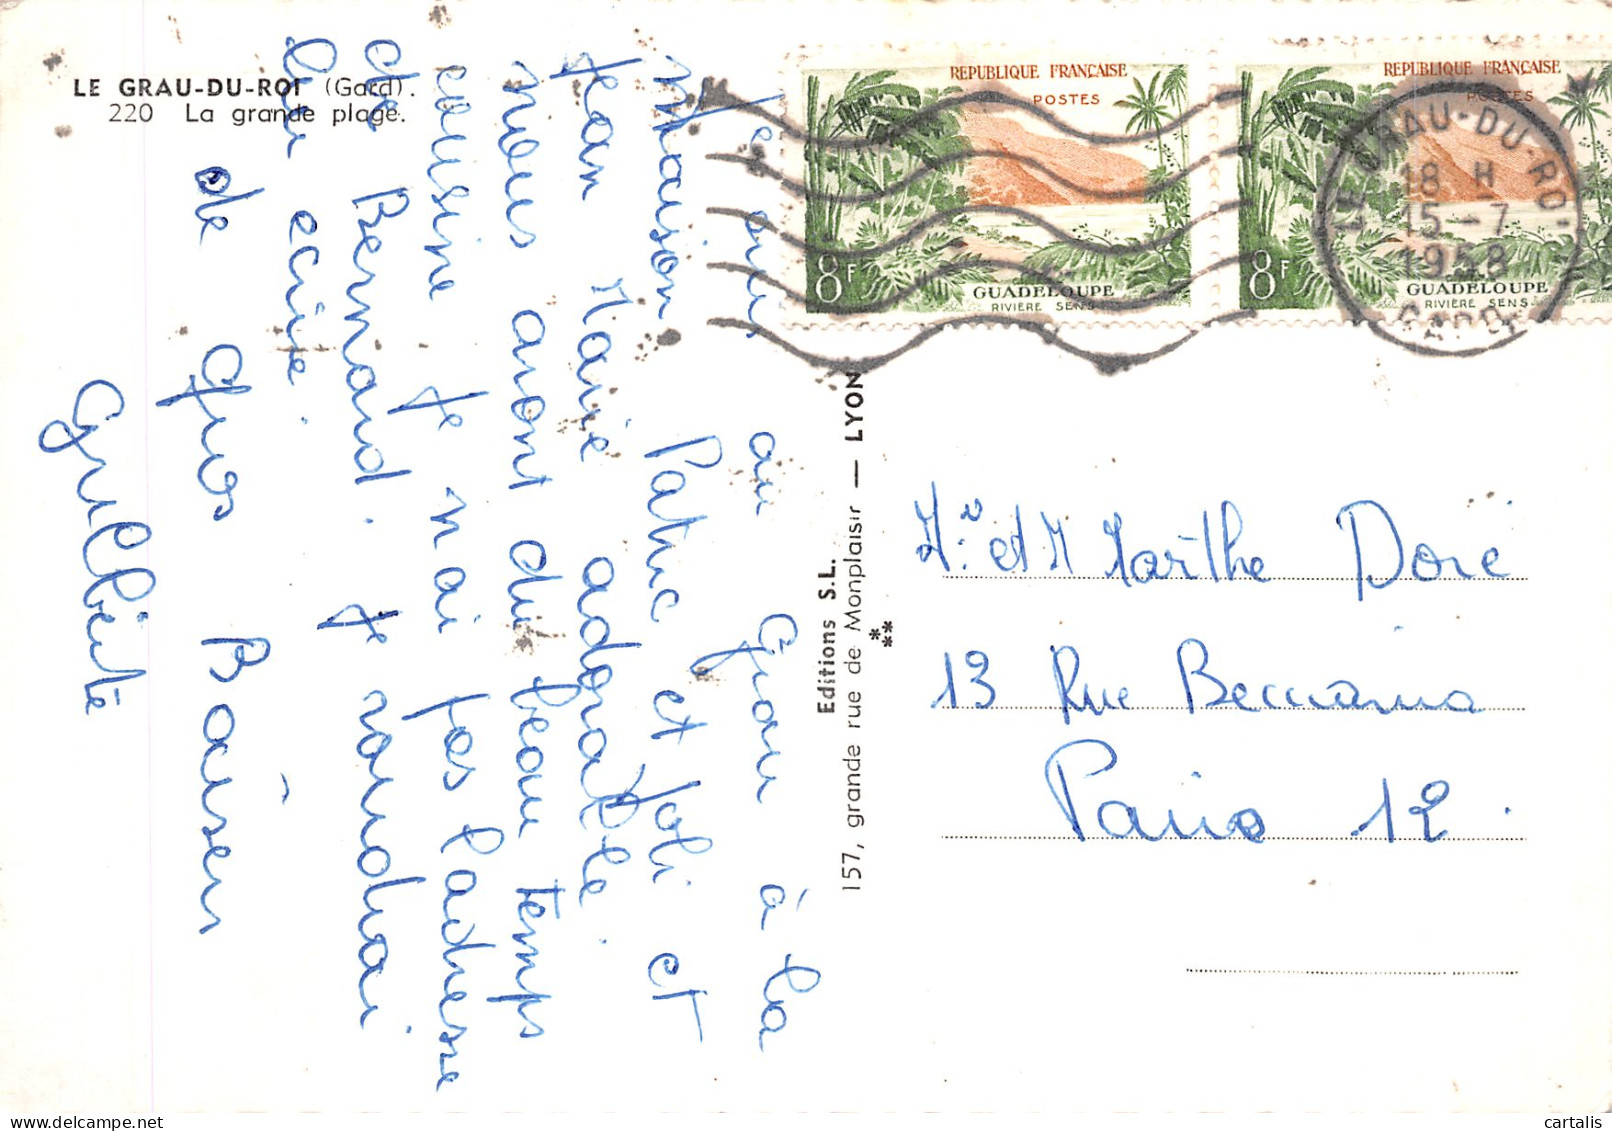 LE GRAU-DU-ROI (Gard).
220 La grande plage.
Je suis au Grau à la
maison Patric et Joli et
Jean Marie adorable.
nous avont du beau temps
cousine Je n'ai pas l'adresse
de Bernard. Je voudrai
lui ecrire.
de Gros Baisers
Guilberte
Editions S.L.
157, grande rue de Monplaisir — LYON
***
REPUBLIQUE FRANÇAISE
POSTES
8F
GUADELOUPE
RIVIÈRE SENS
REPUBLIQUE FRANÇAISE
POSTES
8F
GUADELOUPE
RIVIÈRE SENS
LE GRAU-DU-ROI
18 H
15-7
1958
GARD
Mr et M Marthe Doré
13 Rue Beccaria
Paris 12.
cartalis